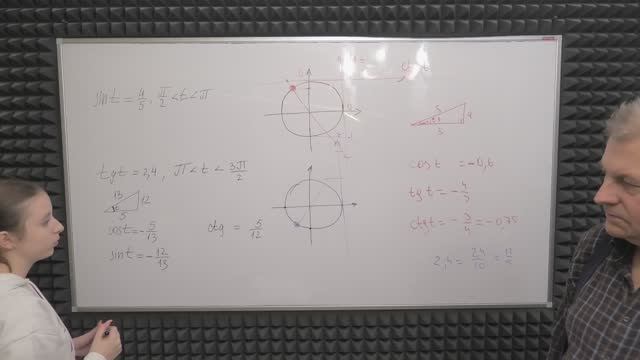 sin t = 4/5, π/2 < t < π
5 4
3
cos t = -0,6
tg t = -4/3
ctg t = -3/4 = -0,75
tg t = 2,4, π < t < 3π/2
13 12
5
cos t = -5/13
sin t = -12/13
ctg = 5/12
2,4 = 24/10 = 12/5